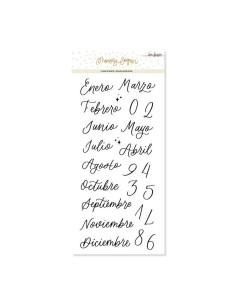 Enero Marzo
Febrero 0 2
Junio Mayo
Julio Abril
Agosto 9 4
Octubre 3 5
Septiembre
Noviembre 1 7
Diciembre 8 6